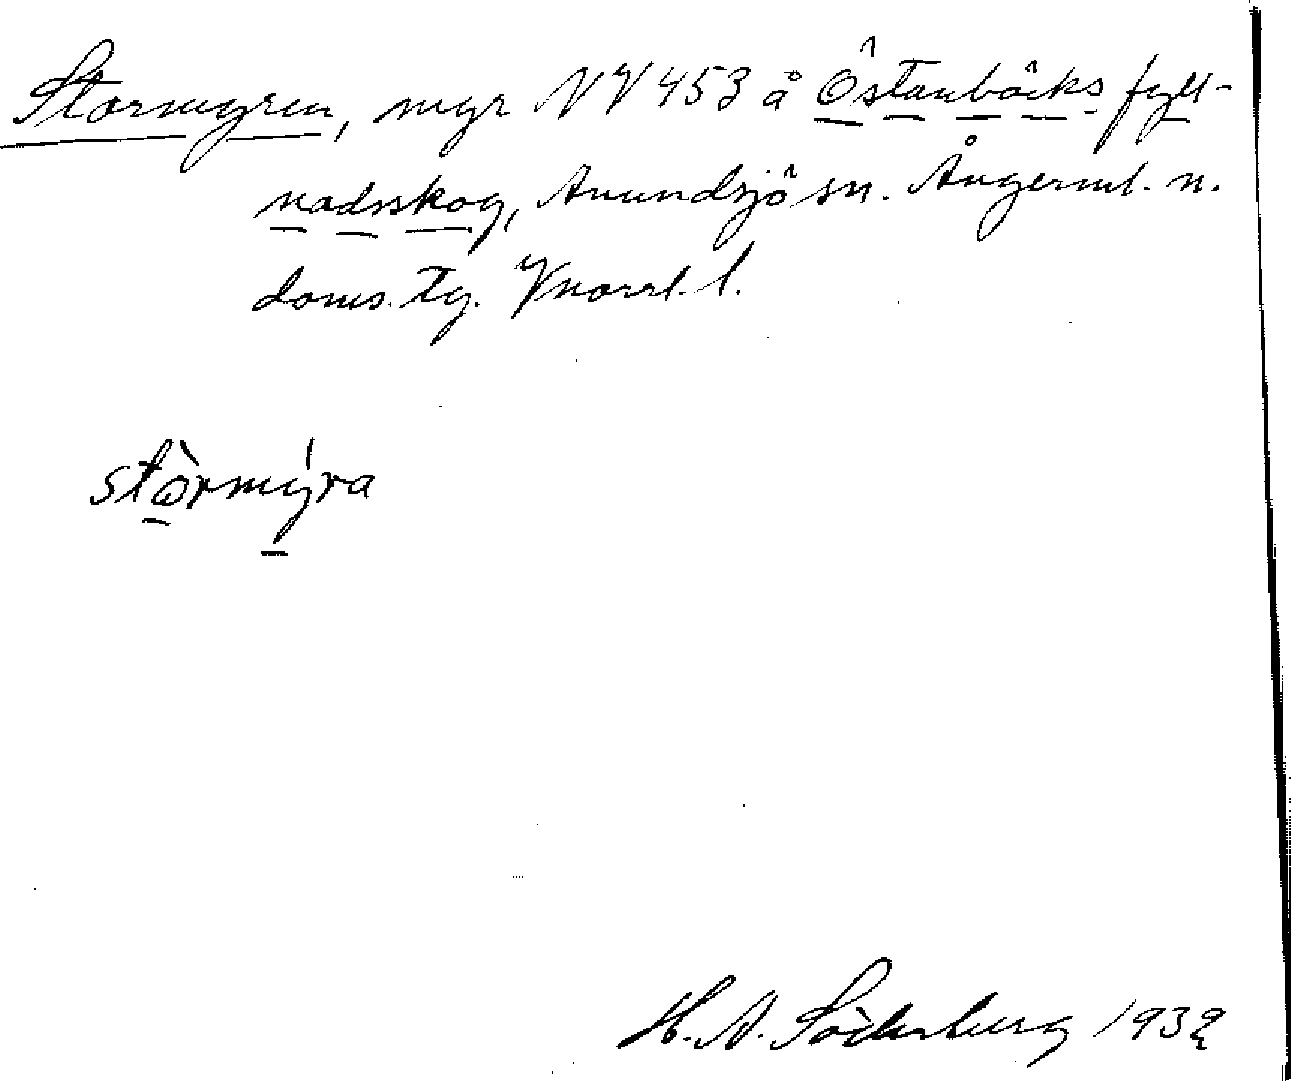 Stormyren, myr NV 453 å Östanbäcks fyll-
nadsskog, Anundsjö sn. Ångerml. n.
doms. tg. Vnorrl. l.
stòrmýra
H. A. Söderberg 1932